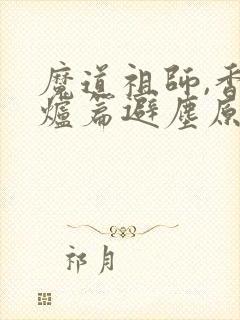 魔道祖師,香
爐篇避塵原
祁月